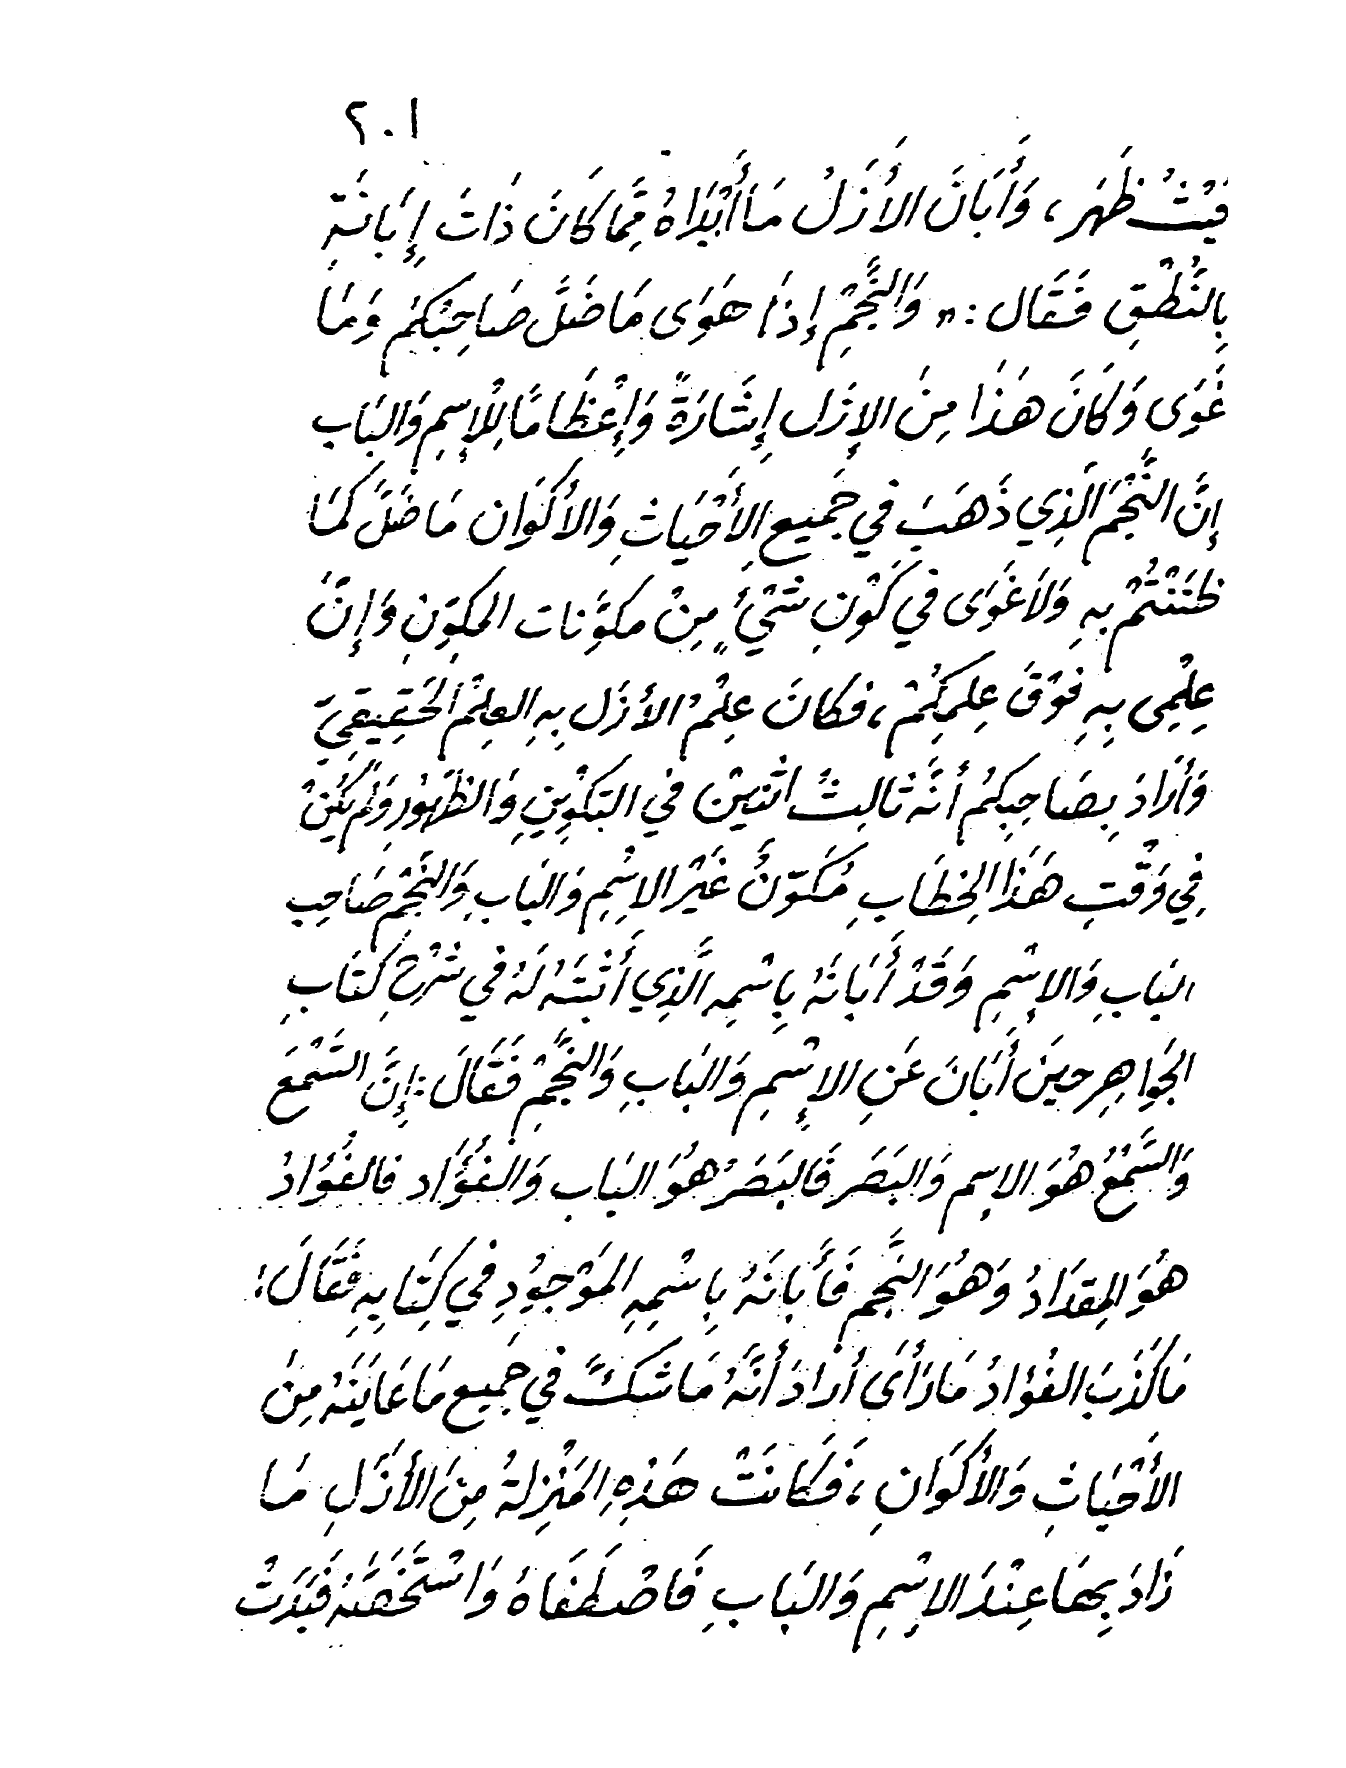 ٢٠١
ظَهَر، وَأَبَانَ الأَزَلُ مَا أَبْدَاهُ مِمَّا كَانَ ذَاتَ إِبَانَةِ
بِالنُّطْقِ فَقَال: " وَالنَّجْمِ إِذَا هَوَى مَا ضَلَّ صَاحِبُكُمْ وَمَا
غَوَى وَكَانَ هَذَا مِنَ الإِزَل إِشَارَةً وَإِعْظَامًا لِلْإِسِمِ وَالبَابِ
إِنَّ النَّجْمَ الَّذِي ذَهَبَ فِي جَمِيعِ الأَحْيَاثِ وَالأَكْوَان مَا ضَلَّ كَمَا
ظَنَنْتُمْ بِهِ وَلَا غَوَى في كَوْنِ شَيْءٍ مِنْ مكَوَّنات المكَوِّنِ وَإِنَّ
عِلْمِى بِهِ فَوْقَ عِلمِكُمْ، فكَانَ عِلْمُ الأَزَل بِهِ العِلْمَ الحَقِيقِيَّ
وَأَرَادَ بِصَاحِبِكُمْ أنَّهُ ثَالِثُ اثْنَيْن في التَكْوِينِ وَالظُهُورِ وَلَمْ يَكُنْ
فِي وَقْتِ هَذَا الخِطَابِ مُكَوّنٌ غَيْرَ الاِسْمِ وَالبَابِ وَالنَجْمِ صَاحِب
البَابِ وَالاِسْمِ وَقَدْ أَبَانَهُ بِاسْمِهِ الَّذِي أَثْبَتَهُ لَهُ في شَرْحِ كِتَابِ
الجَوَاهِرِ حِينَ أَبَانَ عَنِ الاِسْمِ وَالبَابِ وَالنَّجْمِ فَقَالَ: إِنَّ السَّمْعَ
وَالسَّمْعُ هُوَ الاِسم وَالبَصَرَ فَالبَصَرُ هُوَ البَاب وَالفُؤَاد فَالفُؤَادُ
هُوَ المِقدَادُ وَهُوَ النَّجم فَأَبَانَهُ بِاسْمِهِ المَوْجُودِ فِي كِتَابِهِ فَقَالَ:
مَا كَذَبَ الفُؤادُ مَا رَأَى أرَادَ أَنَّهُ مَا شَكَّ في جَمِيع مَا عَايَنَهُ مِنَ
الأَحْيَاثِ وَالأَكْوَانِ، فَكَانَتْ هَذِهِ المَنْزِلَةُ مِنَ الأَزَلِ مَا
زَادَ بِهَا عِنْدَ الاِسْمِ وَالبَابِ فَاصْطَفَاهُ وَاسْتَخَصَّهُ فَبَدَتْ